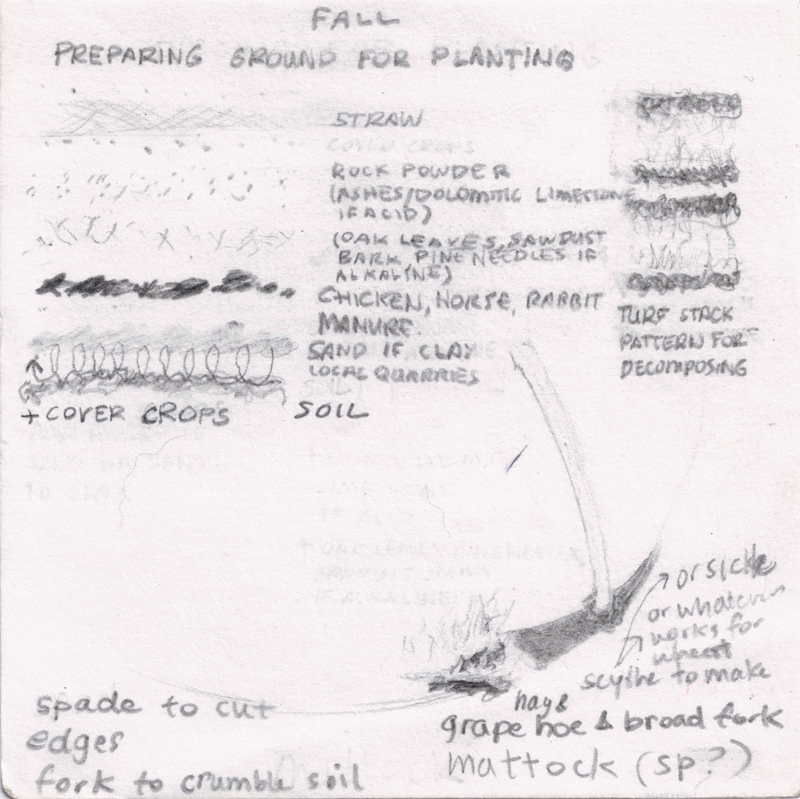 FALL
PREPARING GROUND FOR PLANTING
STRAW
COVER CROPS
ROCK POWDER
(ASHES/DOLOMITIC LIMESTONE
IF ACID)
(OAK LEAVES, SAWDUST
BARK PINE NEEDLES IF
ALKALINE)
CHICKEN, HORSE, RABBIT
MANURE
SAND IF CLAY
LOCAL QUARRIES
+ COVER CROPS
SOIL
TURF STACK
PATTERN FOR
DECOMPOSING
or sickle
or whatever
works for
wheat
scythe to make
hay &
grape hoe & broad fork
mattock (sp?)
spade to cut
edges
fork to crumble soil